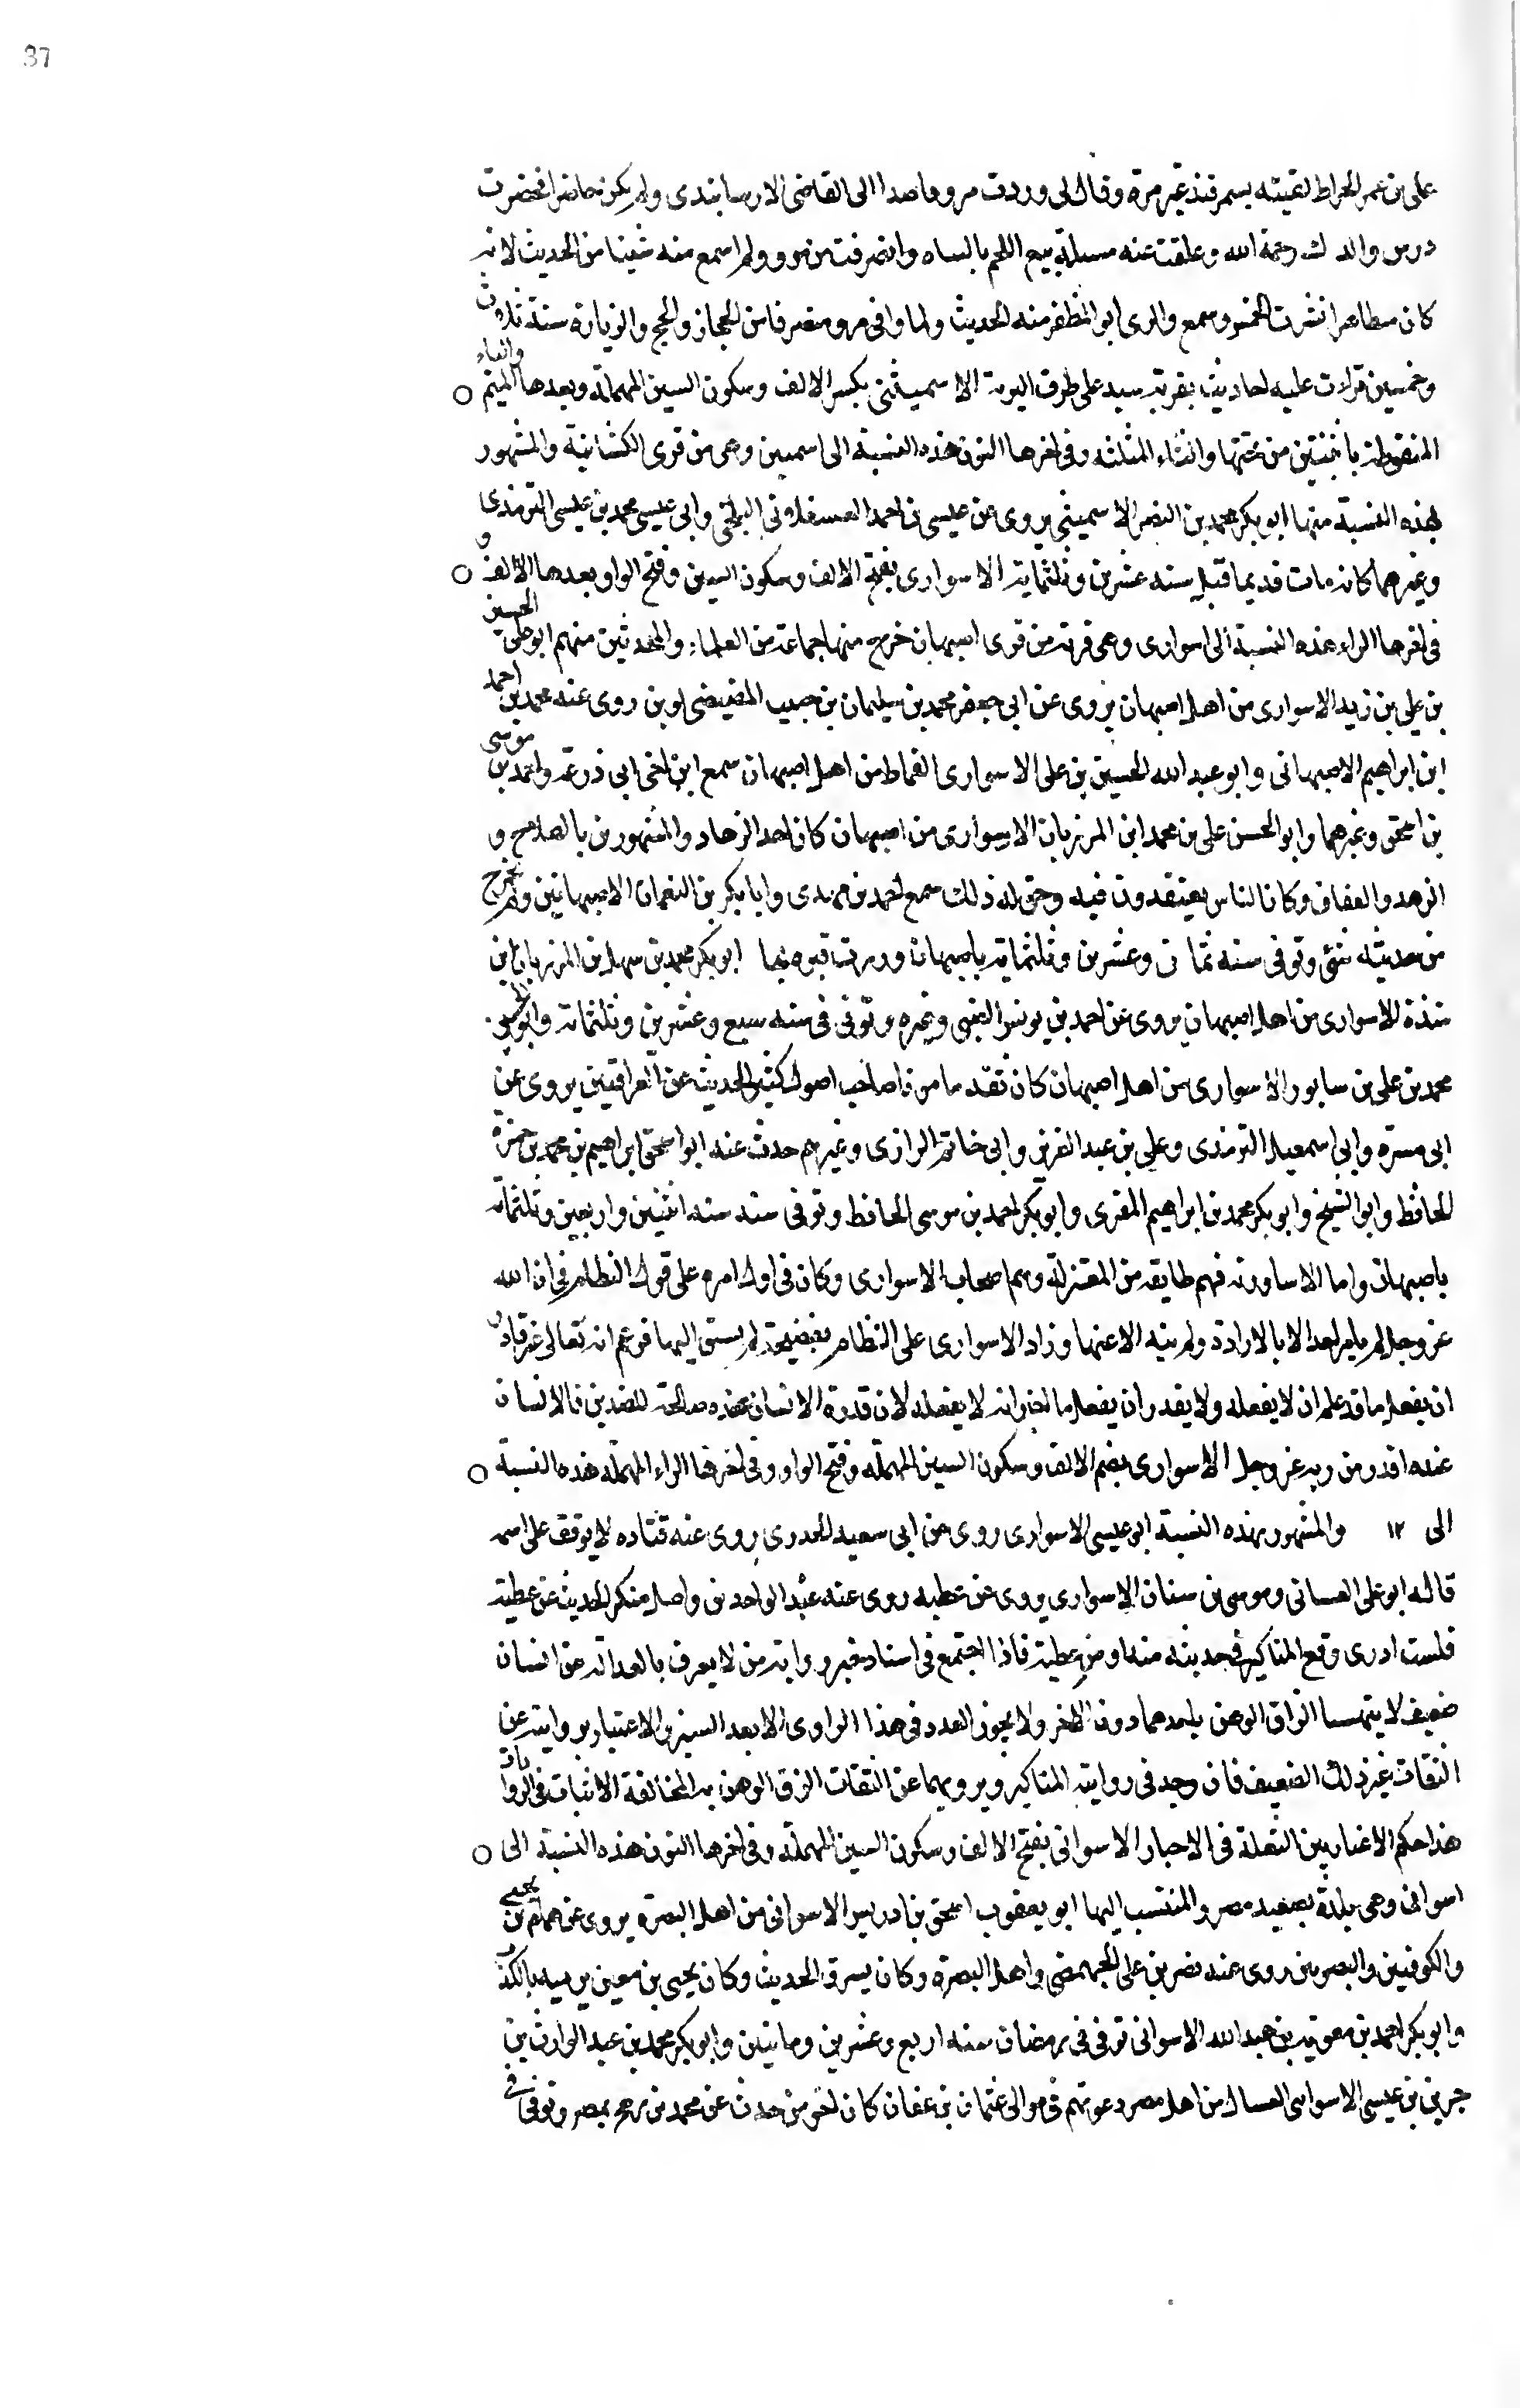 37
على بن عمر الخراط لقيته بسمرقند غير مرة وقال لى وردت مرو قاصدا الى القاضى الارسابندى ولم يكن حاضرا فحضرت
درس والدك رحمة الله وعلقت عنه مسئلة بيع اللحم بالساه وانصرفت من مرو ولم اسمع منه شيئا من الحديث لانه
كان وسمع والدى ابو المظفر منه الحديث ولما وافى مرو منصرفا من الحجاز والحج والزيارة سنة ثلاث
وخمسين قرات عليه احاديث بقرية سيد على طرف البرية الاسميثنى بكسر الالف وسكون السين المهملة وبعدها الميم والياء
المنقوطة باثنتين من تحتها والثاء المثلثه وفى اخرها النون هذه النسبة الى اسميثن وهى من قرى الكشانية والمشهور
بهذه النسبة منها ابو بكر محمد بن النضر الاسميثنى يروى عن عيسى بن احمد العسقلانى البلخى وابى عيسى محمد بن عيسى الترمذى
وغيرهما كانه مات قديما قبل سنه عشرين وثلثمايه الاسوارى بفتح الالف وسكون السين وفتح الواو بعدها الالف و
فى اخرها الراء هذه النسبة الى اسوارى وهى قرية من قرى اصبهان خرج منها جماعة من العلماء والمحدثين منهم ابو على الحسين
بن على بن زيد الاسوارى من اهل اصبهان يروى عن ابى جعفر محمد بن سليمان بن حبيب المصيصى لوين روى عنه محمد بن احمد
ابن ابراهيم الاصبهانى وابو عبد الله الحسين بن على الاسوارى القماط من اهل اصبهان سمع ابن اخى ابى زرعة واحمد بن موسى
بن اسحق وغيرهما وابو الحسن على بن محمد ابن المرزبان الاسوارى من اصبهان كان احد الزهاد والمشهورين بالصلاح و
الزهد والعفاف وكان الناس يعتقدون فيه وحق له ذلك سمع احمد بن مهدى وابا بكر بن النعمان الاصبهانيين ولم يخرج
من حديثه شئ وتوفى سنه ثمان وعشرين وثلثمايه باصبهان وزرت قبره بها ابو بكر محمد بن سهل بن المرزبان بن
مندة الاسوارى من اهل اصبهان يروى عن احمد بن يونس الضبى وغيره وتوفى فى سنه سبع وعشرين وثلثمايه وابو الحسن
محمد بن على بن سابور الاسوارى من اهل اصبهان كان ثقة مامونا صاحب اصول كثير الحديث عن العراقيين يروى عن
ابى مسره وابى اسمعيل الترمذى وعلى بن عبد العزيز وابى حاتم الرازى وغيرهم حدث عنه ابو اسحق ابراهيم بن محمد بن حمزة
الحافظ وابو الشيخ وابو بكر محمد بن ابراهيم المقرى وابو بكر احمد بن موسى الحافظ وتوفى سنه سنه اثنين واربعين وثلثمايه
باصبهان واما الاساورية فهم طايفه من المعتزلة وهم اصحاب الاسوارى وكان فى اول امره على قول النظام فى ان الله
عز وجل لم يامر احدا الا بالارادة ولم ينه الا عنها وزاد الاسوارى على النظام بفضيحة لم يسبق اليها فزعم انه تعالى غير قادر
ان يفعل ما قد علم ان لا يفعله ولا يقدر ان يفعل ما اخبر انه لا يفعله لان قدرة الانسان عنده صالحة للضدين فالانسان
عنده اقدر من ربه عز وجل الاسوارى بضم الالف وسكون السين المهملة وفتح الواو وفى اخرها الراء المهملة هذه النسبة
الى ١٢ والمشهور بهذه النسبة ابو عيسى الاسوارى روى عن ابى سعيد الخدرى روى عنه قتاده لا يوقف على اسمه
قاله ابو على الغسانى وموسى بن سنان الاسوارى يروى عن عطيه روى عنه عبد الواحد بن واصل منكر الحديث عن عطيه
فلست ادرى وقع المناكير فى حديثه منه او من عطية فاذا اجتمع فى اسناد خبر رواية من لا يعرف بالعدالة عن انسان
ضعيف لا يتهيا الزاق الوهن باحدهما دون الاخر ولا يجوز القدح فى هذا الراوى الا بعد السبر والاعتبار بروايته عن
الثقات غير ذلك الضعيف فان وجد فى روايته المناكير ويرويها عن الثقات الزق الوهن به لمخالفة الاثبات فى الروايات
هذا حكم الاعتبار بين النقلة فى الاخبار الاسوانى بفتح الالف وسكون السين المهملة وفى اخرها النون هذه النسبة الى
اسوانى وهى بلدة بصعيد مصر والمنتسب اليها ابو يعقوب اسحق بن ادريس الاسوانى من اهل البصره يروى عن همام بن يحيى
والكوفيين والبصريين روى عنه نصر بن على الجهضمى واهل البصره وكان يسرق الحديث وكان يحيى بن معين يرميه بالكذب
وابو بكر احمد بن معوية بن عبد الله الاسوانى توفى فى رمضان سنه اربع وعشرين وماتين وابو بكر محمد بن عبد الوارث بن
جرير بن عيسى الاسوانى العسال من اهل مصر دعوتهم فى موالى عثمان بن عفان كان اخر من حدث عن محمد بن رمح بمصر وتوفى فى